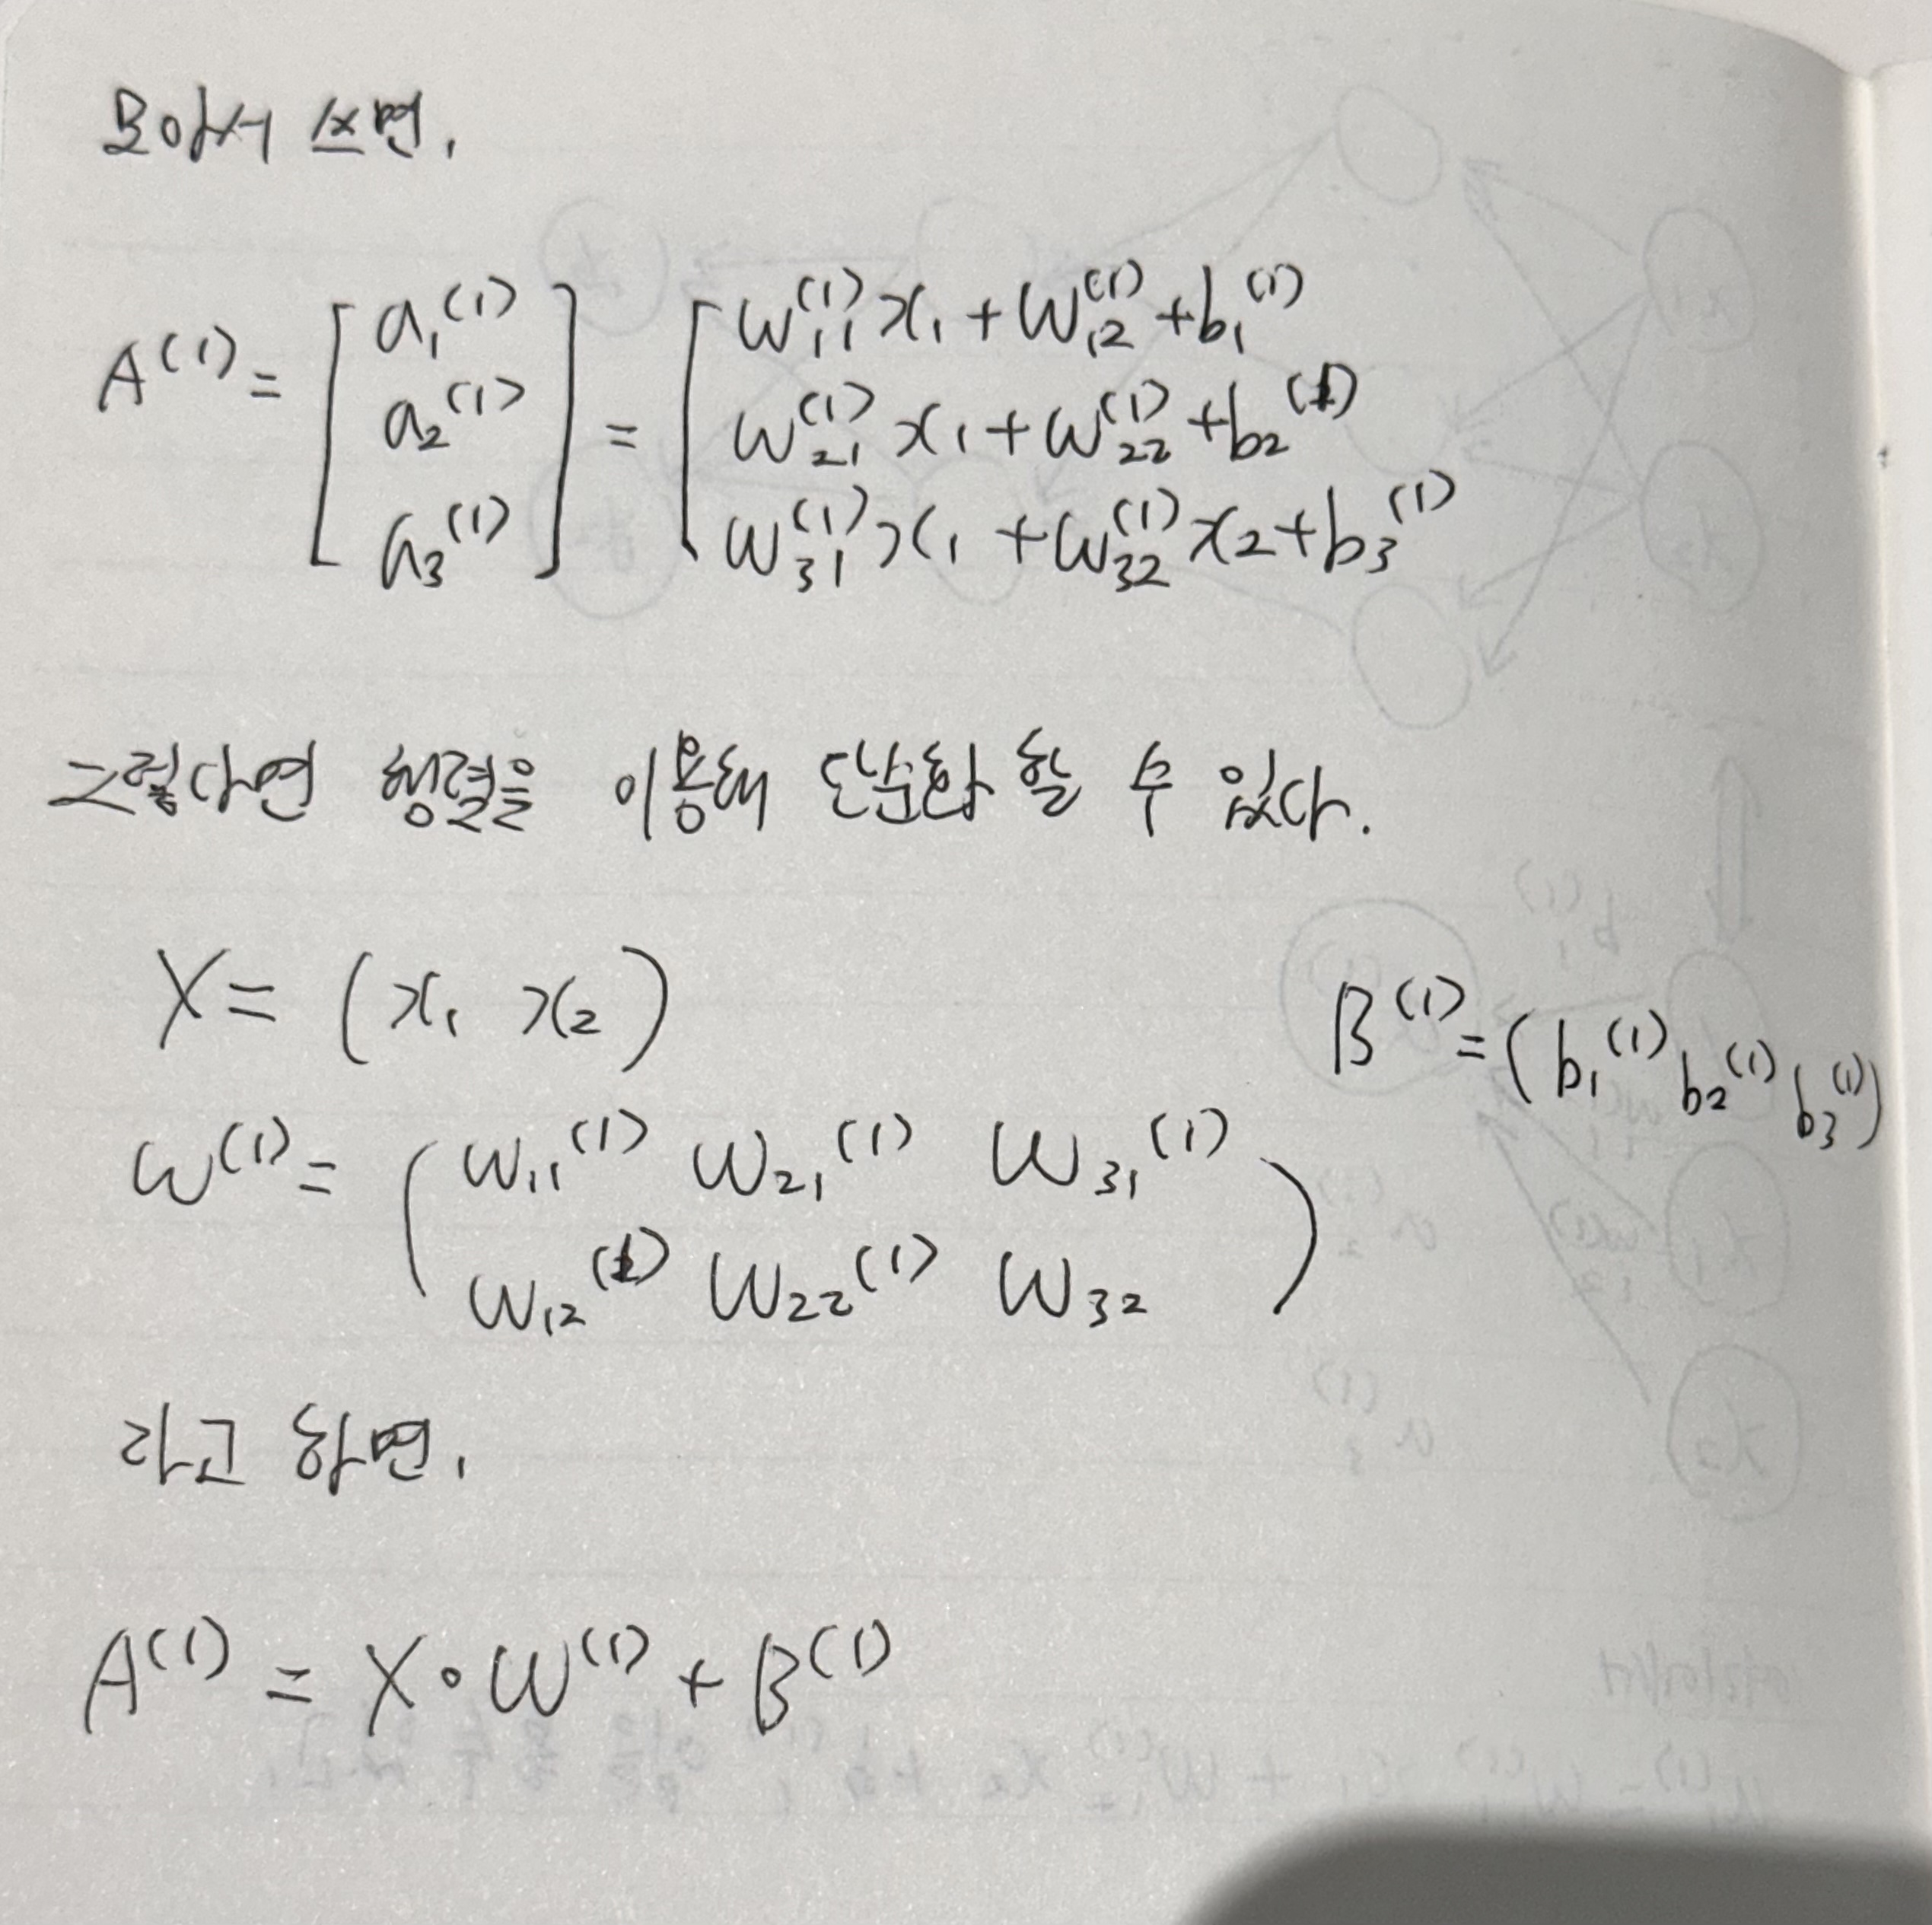 모아서 쓰면,
A^(1) = [a₁^(1) a₂^(1) a₃^(1)] = [w₁₁^(1)x₁ + w₁₂^(1) + b₁^(1)
w₂₁^(1)x₁ + w₂₂^(1) + b₂^(1)
w₃₁^(1)x₁ + w₃₂^(1)x₂ + b₃^(1)
그렇다면 행렬을 이용해 단순화 할 수 있다.
X = (x₁ x₂)
B^(1) = (b₁^(1) b₂^(1) b₃^(1))
W^(1) = (w₁₁^(1) w₂₁^(1) w₃₁^(1)
w₁₂^(1) w₂₂^(1) w₃₂)
라고 하면,
A^(1) = X·W^(1) + B^(1)